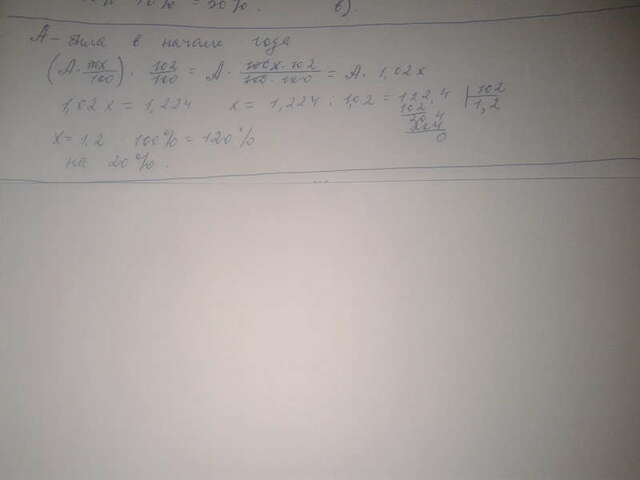 10% = 20%. в).
А - была в начале года
(А · x/100) · 102/100 = А · 100x · 102/100 · 100 = А · 1,02x
1,02x = 1,224 x = 1,224 : 1,02 = 122,4 | 102
102 1,2
20 4
0
x = 1,2 100% = 120%
на 20%.